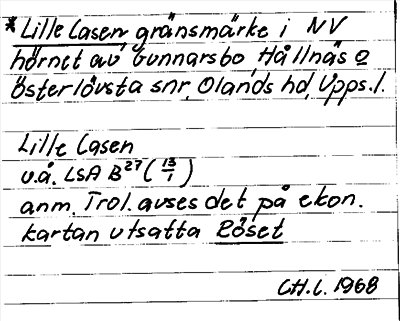 *Lille Casen, gränsmärke i NV
hörnet av Gunnarsbo, Hållnäs o
österlövsta snr, Olands hd, Upps.l.
Lille Casen
u.å. LSA B27 (13/1)
anm. Trol. avses det på ekon.
kartan utsatta Röset
CH.L. 1968